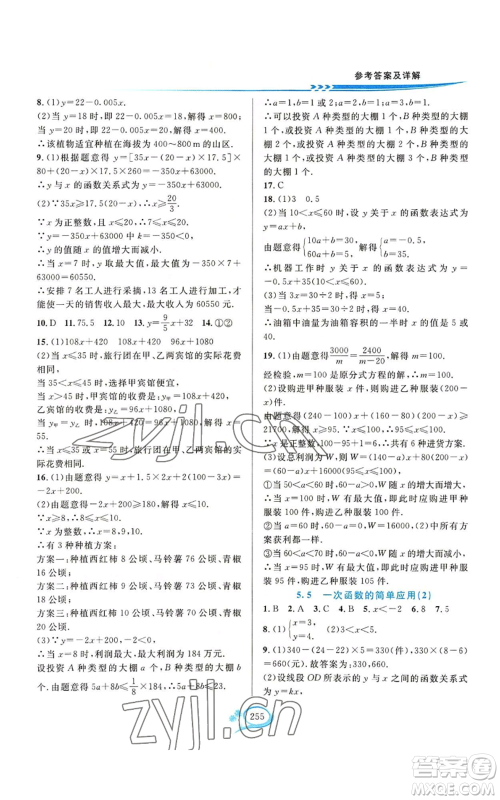 参考答案及详解
8.(1)y=22-0.005x.
(2)当 y=18 时,即 22-0.005x=18,解得 x=800;
当 y=20 时,即 22-0.005x=20,解得 x=400.
∴该植物适宜种植在海拔为 400~800 m 的山区.
9.(1)根据题意得 y=[35x-(20-x)×17.5]×
80+(20-x)×17.5×130=-350x+63000.
∴y 与 x 的函数关系式为 y=-350x+63000.
(2)∵35x≥17.5(20-x),∴x≥20/3.
又∵x 为正整数,且 x≤20,∴7≤x≤20.
∵-350<0,∴y 随 x 的增大而减小.
∴当 x=7 时,y 取最大值,为 -350×7+
63000=60550.
∴安排 7 名工人进行加工,13 名工人进行采摘,才
能使一天的销售收入最大,最大值为 60550 元.
10.D 11.75.5 12.10 13.y=9/5x+32 14.①②
15.(1)108x+420 108x+420
(2)当 x≤35 时,旅行团在甲、乙两宾馆的实际花费
相同.
当 35<x≤45 时,选择甲宾馆便宜.
当 x>45 时,甲宾馆的花费 y甲=108x+420,
乙宾馆的花费 y乙=96x+1080.
当 y甲=y乙 时,108x+420=96x+1080,解得 x=
55.
∴当 x≤35 或 x=55 时,旅行团在甲、乙两宾馆的
实际花费相同.
16.(1)由题意得 y=x+1.5×2x+2(100-3x)
=-2x+200.
(2)由题意得 -2x+200≥180,解得 x≤10.
∵x≥8,∴8≤x≤10.∵x 为整数,∴x=8,9,10.
∴有 3 种种植方案:
方案一:种植西红柿 8 公顷、马铃薯 76 公顷、青椒
16 公顷;
方案二:种植西红柿 9 公顷、马铃薯 73 公顷、青椒
18 公顷;
方案三:种植西红柿 10 公顷、马铃薯 70 公顷、青椒
20 公顷.
(3)∵y=-2x+200,-2<0,
∴当 x=8 时,利润最大,最大利润为 184 万元.
设投资 A 种类型的大棚 a 个,B 种类型的大棚 b
个,由题意得 5a+8b≤1/8×184,即 5a+8b≤23.
∴a=1,b=1 或 2;a=2,b=1;a=3,b=1.
∴可以投资 A 种类型的大棚 1 个,B 种类型的大
棚 1 个,或投资 A 种类型的大棚 1 个,B 种类型的
大棚 2 个,或投资 A 种类型的大棚 2 个,B 种类型
的大棚 1 个,或投资 A 种类型的大棚 3 个,B 种类
型的大棚 1 个.
17.C
18.(1)3 0.5
(2)当 10<x≤60 时,设 y 关于 x 的函数表达式为
y=ax+b,
由题意得{10a+b=30, 60a+b=5,解得{a=-0.5, b=35.
∴机器工作时 y 关于 x 的函数表达式为 y=
-0.5x+35(10<x≤60).
(3)当 3x=30÷2 时,x=5;
当 -0.5x+35=30÷2 时,x=40.
∴油箱中油量为油箱容积的一半时 x 的值为 5
或 40.
19.(1)由题意得 3000/m=2400/(m-20),解得 m=100.
经检验,m=100 是原分式方程的解.
(2)设购进甲种运动服 x 件,则乙种 (200-x)件.
由题意得 (240-100)x+(160-80)(200-x)≥
21700,解得 x≥95.∵x≤100,∴95≤x≤100.
∵x 是正整数,100-95+1=6,∴共有 6 种进货方案.
(3)设总利润为 W,则 W=(240-100-a)x+80(200-x)
=(60-a)x+16000(95≤x≤100).
①当 50<a<60 时,60-a>0,W 随 x 的增大而增大,
∴当 x=100 时,W 有最大值,即此时应购进甲种
服装 100 件,购进乙种服装 100 件.
②当 a=60 时,60-a=0,W=16000,(2)中所有
方案获利一样.
③当 60<a<70 时,60-a<0,W 随 x 的增大而减小,
∴当 x=95 时,W 有最大值,即此时应购进甲种服
装 95 件,购进乙种服装 105 件.
5.5 一次函数的简单应用(2)
1.B 2.A 3.C 4.B 5.x<-2 6.8 7.5
8.(1){x=3, y=4. (2)3<x≤5.
9.(1)340-(24-22)×5=330(件),340-(2-1)×5
=660(元).故答案为:330,660.
(2)设线段 OD 所表示的 y 与 x 之间的函数关系式为
y=kx,
255
zyjl.cn
zyjl.cn